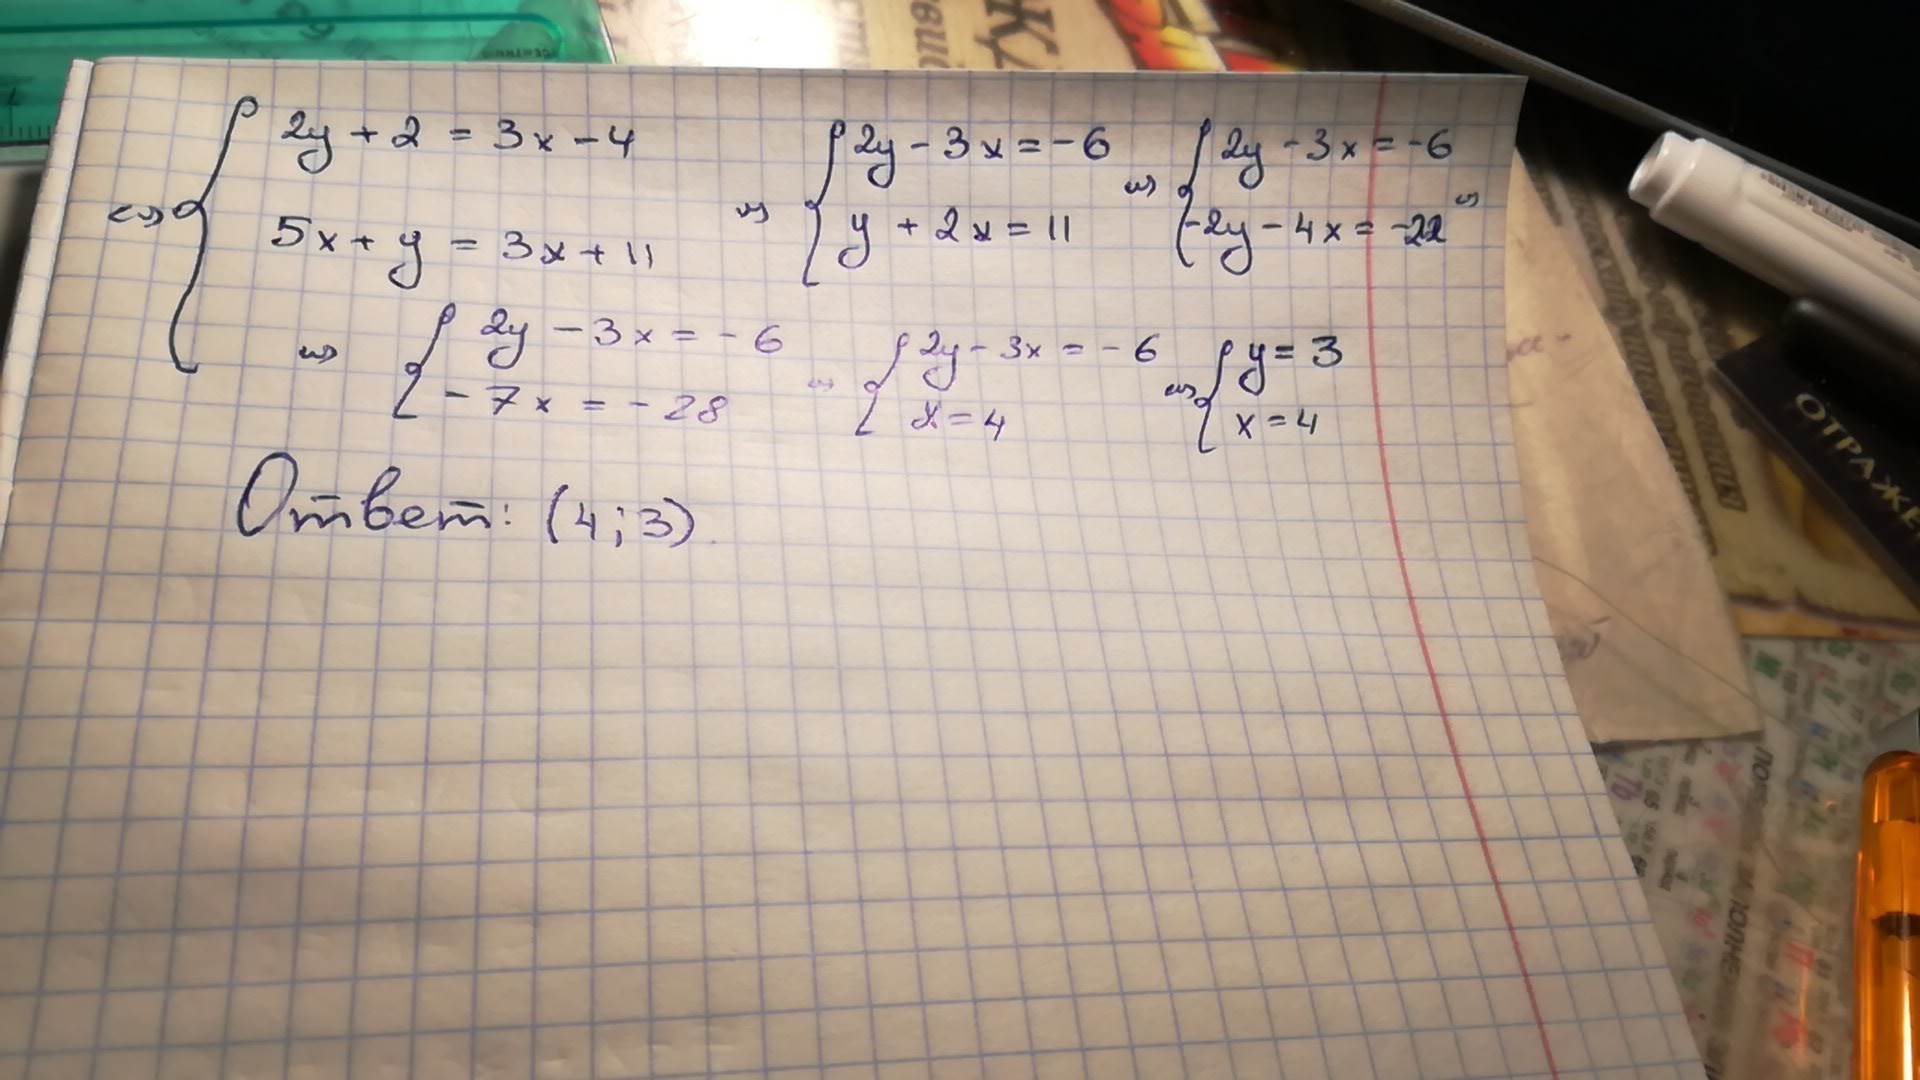 <=> { 2y + 2 = 3x - 4
5x + y = 3x + 11
<=> { 2y - 3x = -6
y + 2x = 11
<=> { 2y - 3x = -6
-2y - 4x = -22 <=>
<=> { 2y - 3x = -6
-7x = -28
<=> { 2y - 3x = -6
x = 4
<=> { y = 3
x = 4
Ответ: (4; 3).
ОТРАЖЕ